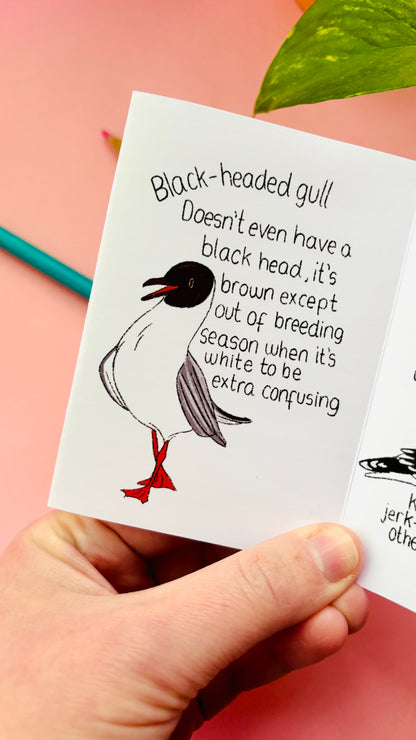 Black-headed gull
Doesn't even have a
black head, it's
brown except
out of breeding
season when it's
white to be
extra confusing
jerk-
othe